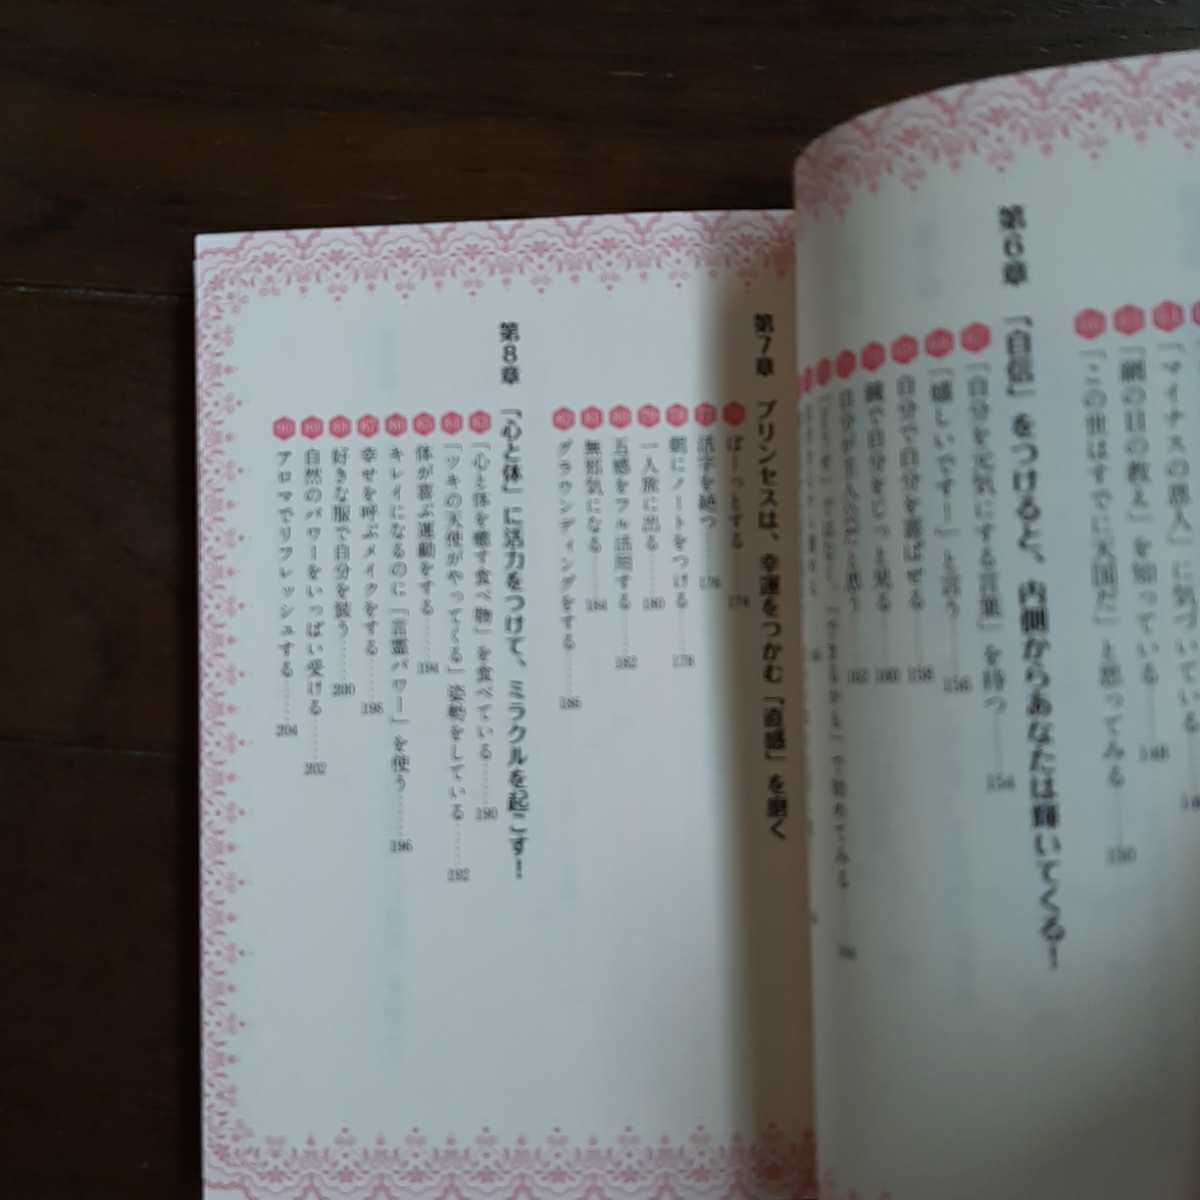 「マイナスの恩人」に気づいている
「鏡の目の教え」を知っている……148
「この世はすでに天国だ」と思ってみる……150
第6章 「自信」をつけると、内側からあなたは輝いてくる!
「自分を元気にする言葉」を持つ……154
「嬉しいです!」と言う……156
自分で自分を喜ばせる……158
鏡で自分をじっと見る……160
自分が主人公だと思う……162
第7章 プリンセスは、幸運をつかむ「直感」を磨く
76 ぼーっとする……174
77 活字を絶つ……176
78 朝にノートをつける……178
79 一人旅に出る……180
80 五感をフル活用する……182
81 無邪気になる……184
82 グラウンディングをする……186
第8章 「心と体」に活力をつけて、ミラクルを起こす!
83 「心と体を癒す食べ物」を食べている……190
84 「ツキの天使がやってくる」姿勢をしている……192
85 体が喜ぶ運動をする……194
86 キレイになるのに「言霊パワー」を使う……196
87 幸せを呼ぶメイクをする……198
88 好きな服で自分を装う……200
89 自然のパワーをいっぱい受ける……202
90 アロマでリフレッシュする……204